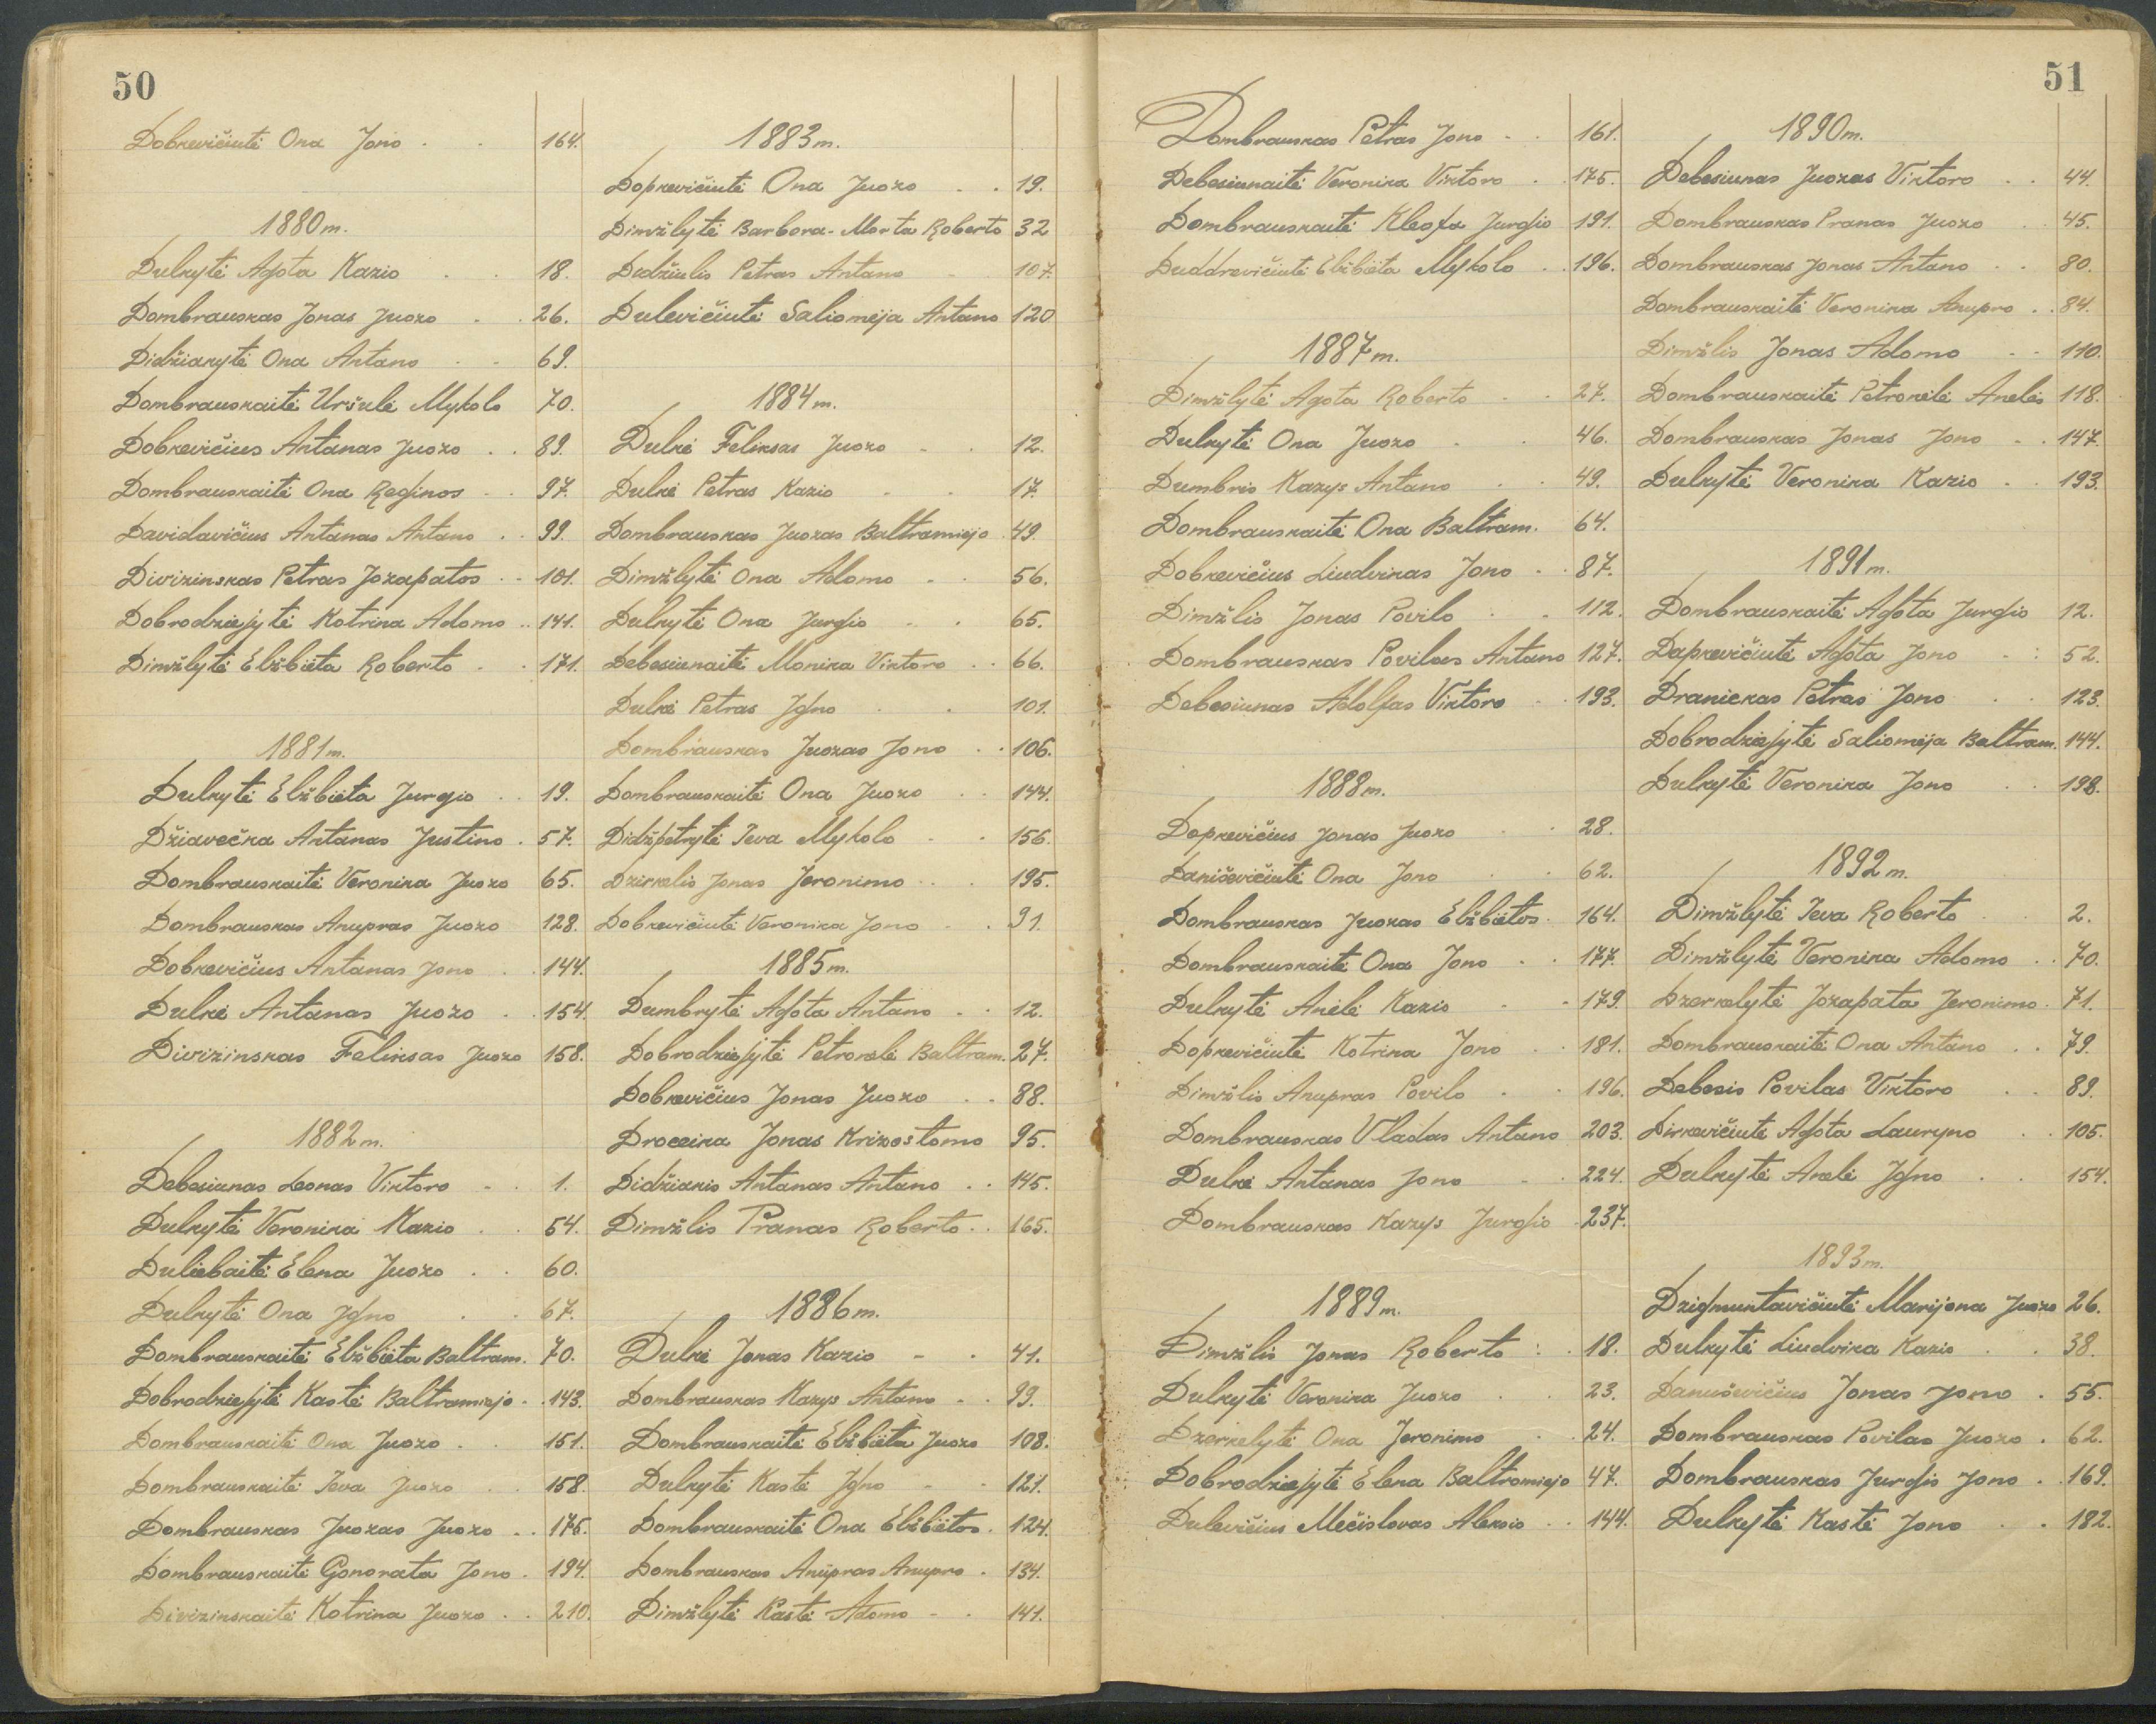 50
Dobkevičiutė Ona Jono . . 164.
1880 m.
Dulkytė Agota Kazio . . 18.
Dombrauskas Jonas Juozo . . 26.
Didžiakytė Ona Antano . . 69.
Dombrauskaitė Uršulė Mykolo 70.
Dobkevičius Antanas Juozo . . 89.
Dombrauskaitė Ona Reginos . . 97.
Davidavičius Antanas Antano . . 99.
Divizinskas Petras Jozapatos . . 101.
Dobrodziejytė Kotrina Adomo . . 141.
Dimžlytė Elžbieta Roberto . . 171.
1881 m.
Dulkytė Elžbieta Jurgio . . 19.
Džiavečka Antanas Justino . 57.
Dombrauskaitė Veronika Juozo 65.
Dombrauskas Anupras Juozo 128.
Dobkevičius Antanas Jono . . 144.
Dulkė Antanas Juozo . . 154.
Divizinskas Feliksas Juozo 158.
1882 m.
Debesiunas Leonas Viktoro . . 1.
Dulkytė Veronika Kazio . . 54.
Duliebaitė Elena Juozo . . 60.
Dulkytė Ona Igno . . 67.
Dombrauskaitė Elžbieta Baltram. 70.
Dobrodziejytė Kastė Baltramiejo . . 143.
Dombrauskaitė Ona Juozo . . 151.
Dombrauskaitė Ieva Juozo . . 158.
Dombrauskas Juozas Juozo . . 175.
Dombrauskaitė Gonorata Jono . 194.
Divizinskaitė Kotrina Juozo . . 210.
1883 m.
Dopkevičiutė Ona Juozo . . 19.
Dimžlytė Barbora-Morta Roberto 32
Didžiulis Petras Antano . 107.
Dulevičiutė Saliomėja Antano 120
1884 m.
Dulkė Feliksas Juozo . . 12.
Dulkė Petras Kazio . . 17.
Dombrauskas Juozas Baltramiejo . 49.
Dimžlytė Ona Adomo . . 56.
Dulkytė Ona Jurgio . . 65.
Debesiunaitė Monika Viktoro . . 66.
Dulkė Petras Igno . . 101.
Dombrauskas Juozas Jono . . 106.
Dombrauskaitė Ona Juozo . . 144.
Didžpetrytė Ieva Mykolo . . 156.
Dzirkelis Jonas Jeronimo . . 195.
Dobkevičiutė Veronika Jono . . 91.
1885 m.
Dumbrytė Agota Antano . . 12.
Dobrodziejytė Petronelė Baltram. 27.
Dobkevičius Jonas Juozo . . 88.
Droceika Jonas Krizostomo 95.
Didžiakis Antanas Antano . . 145.
Dimžlis Pranas Roberto . . 165.
1886 m.
Dulkė Jonas Kazio . . 41.
Dombrauskas Kazys Antano . . 99.
Dombrauskaitė Elžbieta Juozo 108.
Dulkytė Kastė Igno . . 121.
Dombrauskaitė Ona Elžbietos . 124.
Dombrauskas Anupras Anupro . 134.
Dimžlytė Kastė Adomo . . 141.
51
Dombrauskas Petras Jono . . 161.
Debesiunaitė Veronika Viktoro . . 175.
Dombrauskaitė Kleofa Jurgio 191.
Duddrevičiutė Elžbieta Mykolo . . 196.
1887 m.
Dimžlytė Agota Roberto . . 27.
Dulkytė Ona Juozo . . 46.
Dumbris Kazys Antano . . 49.
Dombrauskaitė Ona Baltram. 64.
Dobkevičius Liudvikas Jono . . 87.
Dimžlis Jonas Povilo . . 112.
Dombrauskas Povilas Antano 127.
Debesiunas Adolfas Viktoro . . 193.
1888 m.
Dopkevičius Jonas Juozo . . 28.
Daniševičiutė Ona Jono . . 62.
Dombrauskas Juozas Elžbietos . 164.
Dombrauskaitė Ona Jono . . 177.
Dulkytė Anėlė Kazio . . 179.
Dopkevičiutė Kotrina Jono . . 181.
Dimžlis Anupras Povilo . . 196.
Dombrauskas Vladas Antano 203.
Dulkė Antanas Jono . . 224.
Dombrauskas Kazys Jurgio . 237.
1889 m.
Dimžlis Jonas Roberto . . 18.
Dulkytė Veronika Juozo . . 23.
Dzerkelytė Ona Jeronimo . . 24.
Dobrodziejytė Elena Baltromiejo 47.
Dulevičius Mečislovas Aleksio . . 144.
1890 m.
Debesiunas Juozas Viktoro . . 44.
Dombrauskas Pranas Juozo . . 45.
Dombrauskas Jonas Antano . . 80.
Dombrauskaitė Veronika Anupro . . 84.
Dimžlis Jonas Adomo . . 110.
Dombrauskaitė Petronėlė Anelės 118.
Dombrauskas Jonas Jono . . 147.
Dulkytė Veronika Kazio . . 193.
1891 m.
Dombrauskaitė Agota Jurgio 12.
Dapkevičiutė Agota Jono . . 52.
Dranickas Petras Jono . . 123.
Dobrodziejytė Saliomėja Baltram. 144.
Dulkytė Veronika Jono . . 198.
1892 m.
Dimžlytė Ieva Roberto . . 2.
Dimžlytė Veronika Adomo . . 70.
Dzerkelytė Jozapata Jeronimo . 71.
Dombrauskaitė Ona Antano . . 79.
Debesis Povilas Viktoro . . 89.
Dirkevičiutė Agota Lauryno . . 105.
Dulkytė Anelė Igno . . 154.
1893 m.
Dzigmuntavičiutė Marijona Juozo 26.
Dulkytė Liudvika Kazio . . 38.
Danuševičius Jonas Jono . 55.
Dombrauskas Povilas Juozo . 62.
Dombrauskas Jurgis Jono . . 169.
Dulkytė Kastė Jono . . 182.